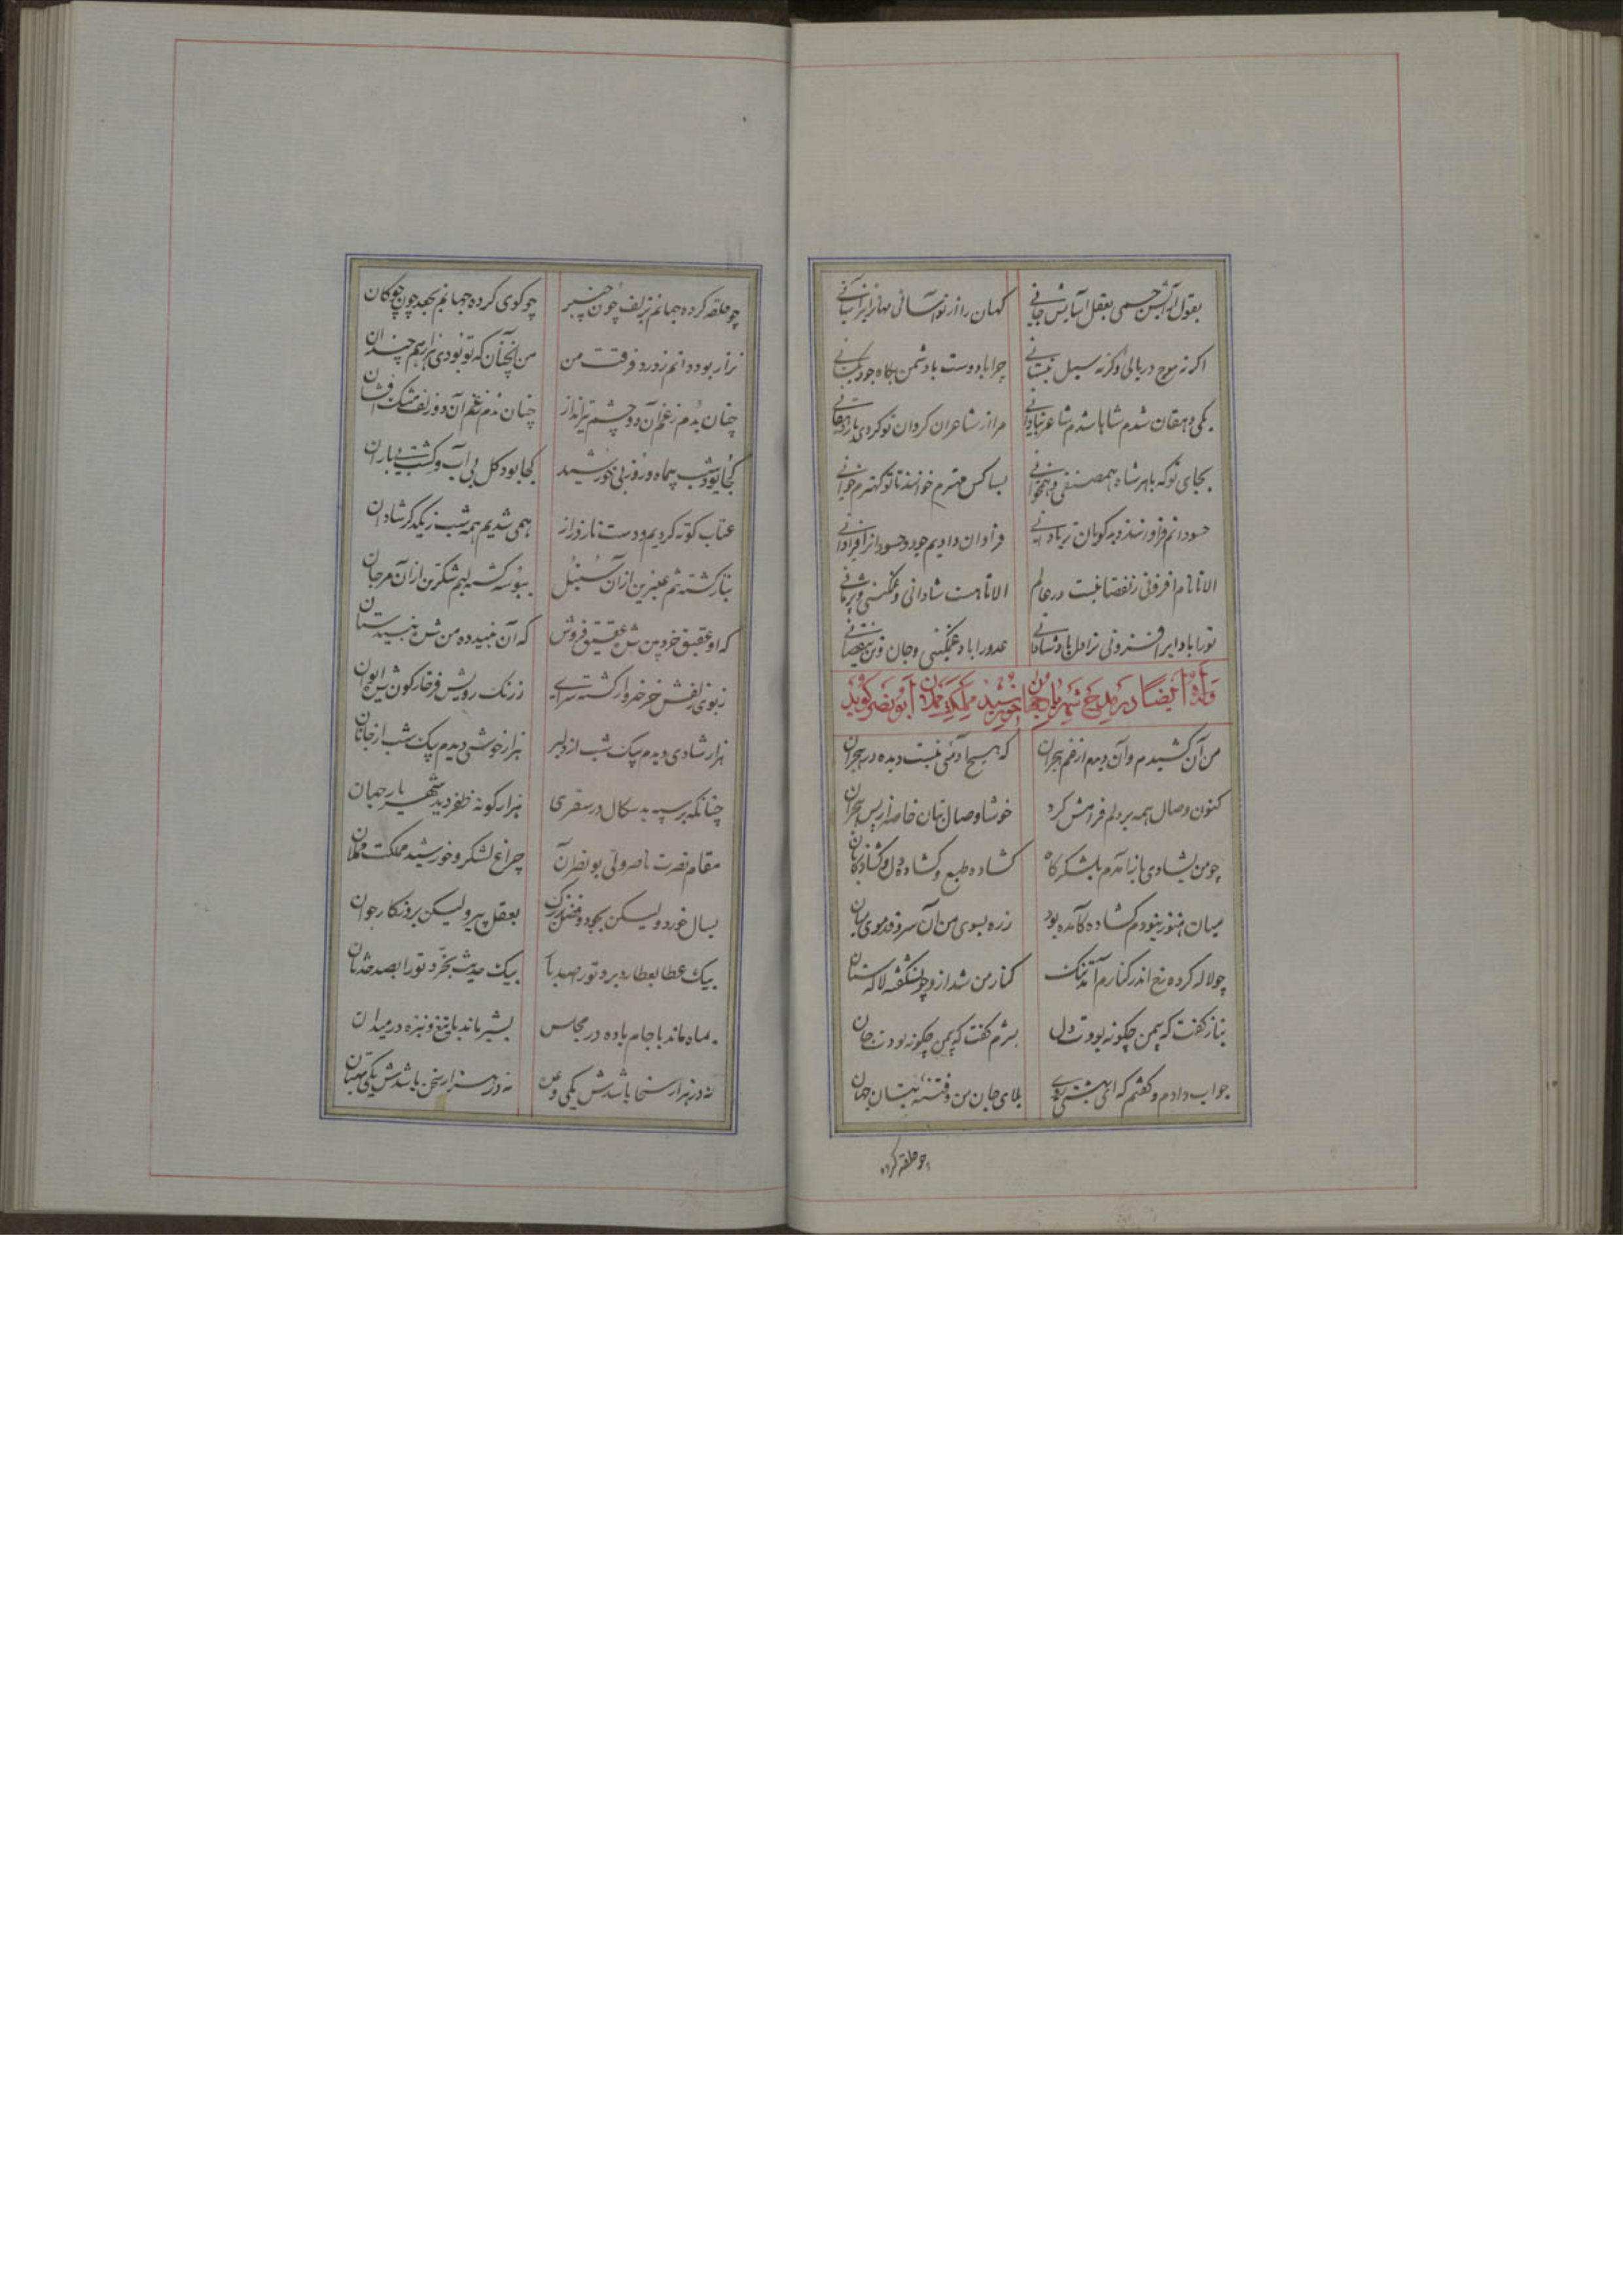 بقول آرایش جسمی بعقل آسایش جانی کهان را از تو آسانی مهانرا از تو آسانی
اگر نه موج دریائی وگر نه سیل نیسانی چرا با دوست با دشمن بگاه جود یکسانی
یکی دهقان بدم شاها شدم شاعر ز نادانی مرا از شاعران کردن تو کردی باز دهقانی
بجای تو که با هر شاه همصنفی و همخوانی بسا کس مهترم خوانند تا تو کهترم خوانی
حسودانم فراوانند و بدگویان ز نادانی فراوان دادیم جود و حسودانرا فراوانی
الا تا نام افزونی ز نقصانیست در عالم الا تا هست شادانی و غمگینی و پژمانی
تو را بادا بر افزونی ز ادل باد و شادانی عدو را باد غمگینی و جان و تن بنقصانی
وله ایضا در مدح شمس الدین ابونصر گوید
من آن کشیدم و آن دیدم از غم هجران که هیچ آدمئی نیست دیده در هجران
کنون وصال همه بر دلم فرامش کرد خوشا وصال بتان خاصه از پس هجران
چو من بشادی باز آمدم بلشکرگاه گشاده طبع و گشاده دل و گشاده زبان
میان هنوز نبودم گشاده کآمده بود ز ره بسوی من آن سرو قد موی میان
چو لاله کرده رخ اندر کنارم آمد تنگ کنار من شد ازو چو شکفته لاله‌ستان
بناز گفت که بیمن چگونه بودت دل بشرم گفت که بیمن چگونه بودت جان
جواب دادم و گفتم که ای بهشتی روی بلای جان من و فتنه بتان جهان
چو حلقه کرده
چو حلقه کرده جهانم بزلف چون چنبر چو گوی کرده جهانم بجعد چون چوگان
نزار بوده دانم ز درد فرقت من من آنچنان که تو بودی نزار هم چندان
چنان بدم ز غم آن دو چشم تیرانداز چنان بدم ز غم آن دو زلف مشک افشان
کجا بود شب بیماه و روز بی خورشید کجا بود گل بی آب و کشت بی باران
عتاب کوته کردیم و دست ناز دراز همی شدیم همه شب ز یکدگر شادان
بناز گشته تنم عنبرین از آن سنبل ببوسه گشته لبم شکرین از آن مرجان
که او عقیق خر و من شده عقیق فروش که آن نبیدده من شده نبیدستان
ز بوی زلفش خرخیز وار گشته سرای ز رنگ رویش فرخارگون شده ایوان
هزار شادی دیدم بیک شب از دلبر هزار خوشی دیدم بیک شب از جانان
چنانکه بر سپه بدسگال در سفری هزار گونه ظفر دید شهریار جهان
مقام نصرت ناصر ولی بونصر آن چراغ لشکر و خورشید مملکت مملان
بسال خورد ولیکن بجود و فضل بزرگ بعقل پیر ولیکن بروزگار جوان
بیک عطا بعطارد برد تو را صد بار بیک حدیث بخرد تو را بصد حدثان
بماه ماند با جام باده در مجلس بشیر ماند با تیغ و نیزه در میدان
نه در هزار سخا باشدش یکی وعده نه در هزار سخن باشدش یکی بهتان